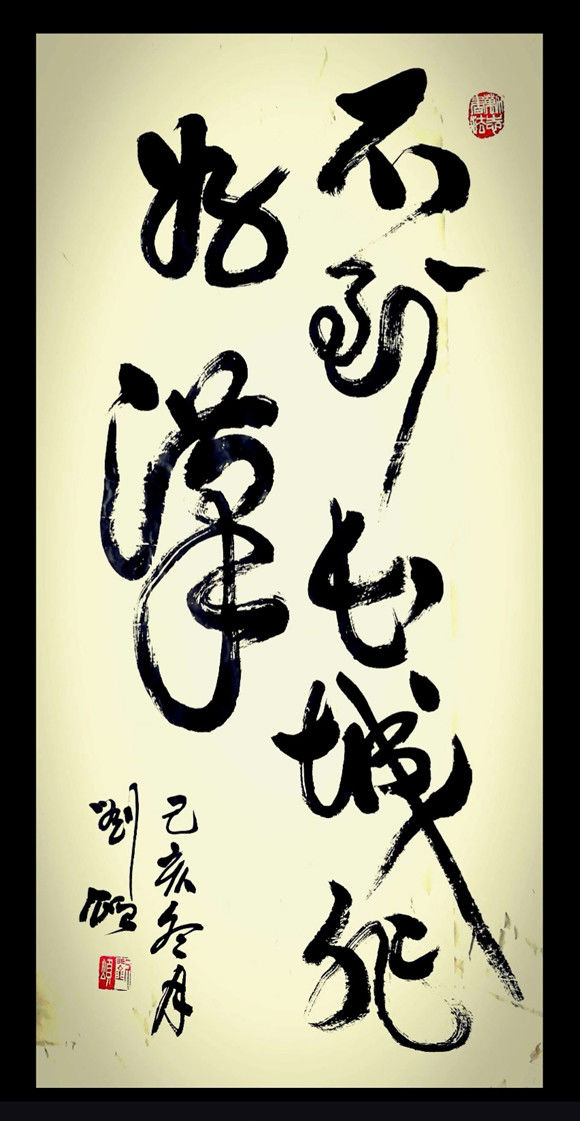 不到长城非
好漢
己亥冬月
劉